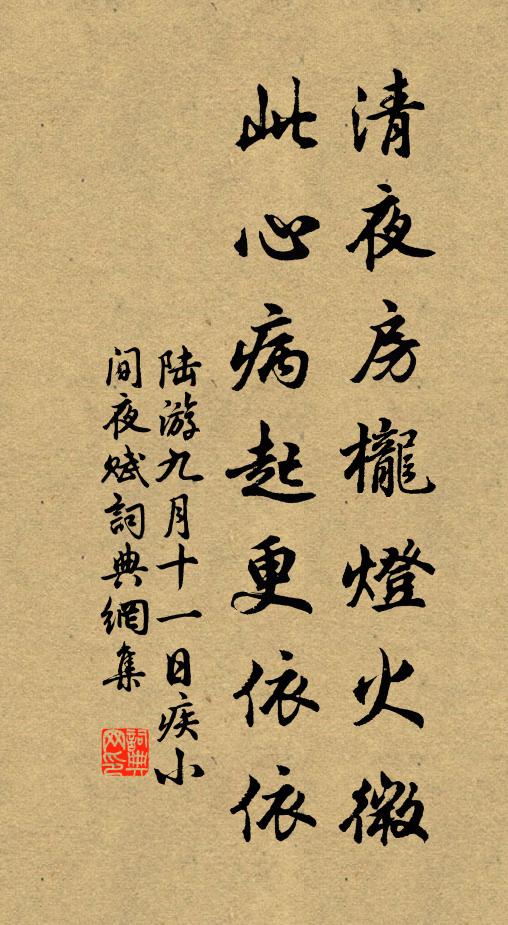 清夜房櫳燈火微
此心病起更依依
陸游九月十一日疾小
间夜赋詞典網集
詞典
网印